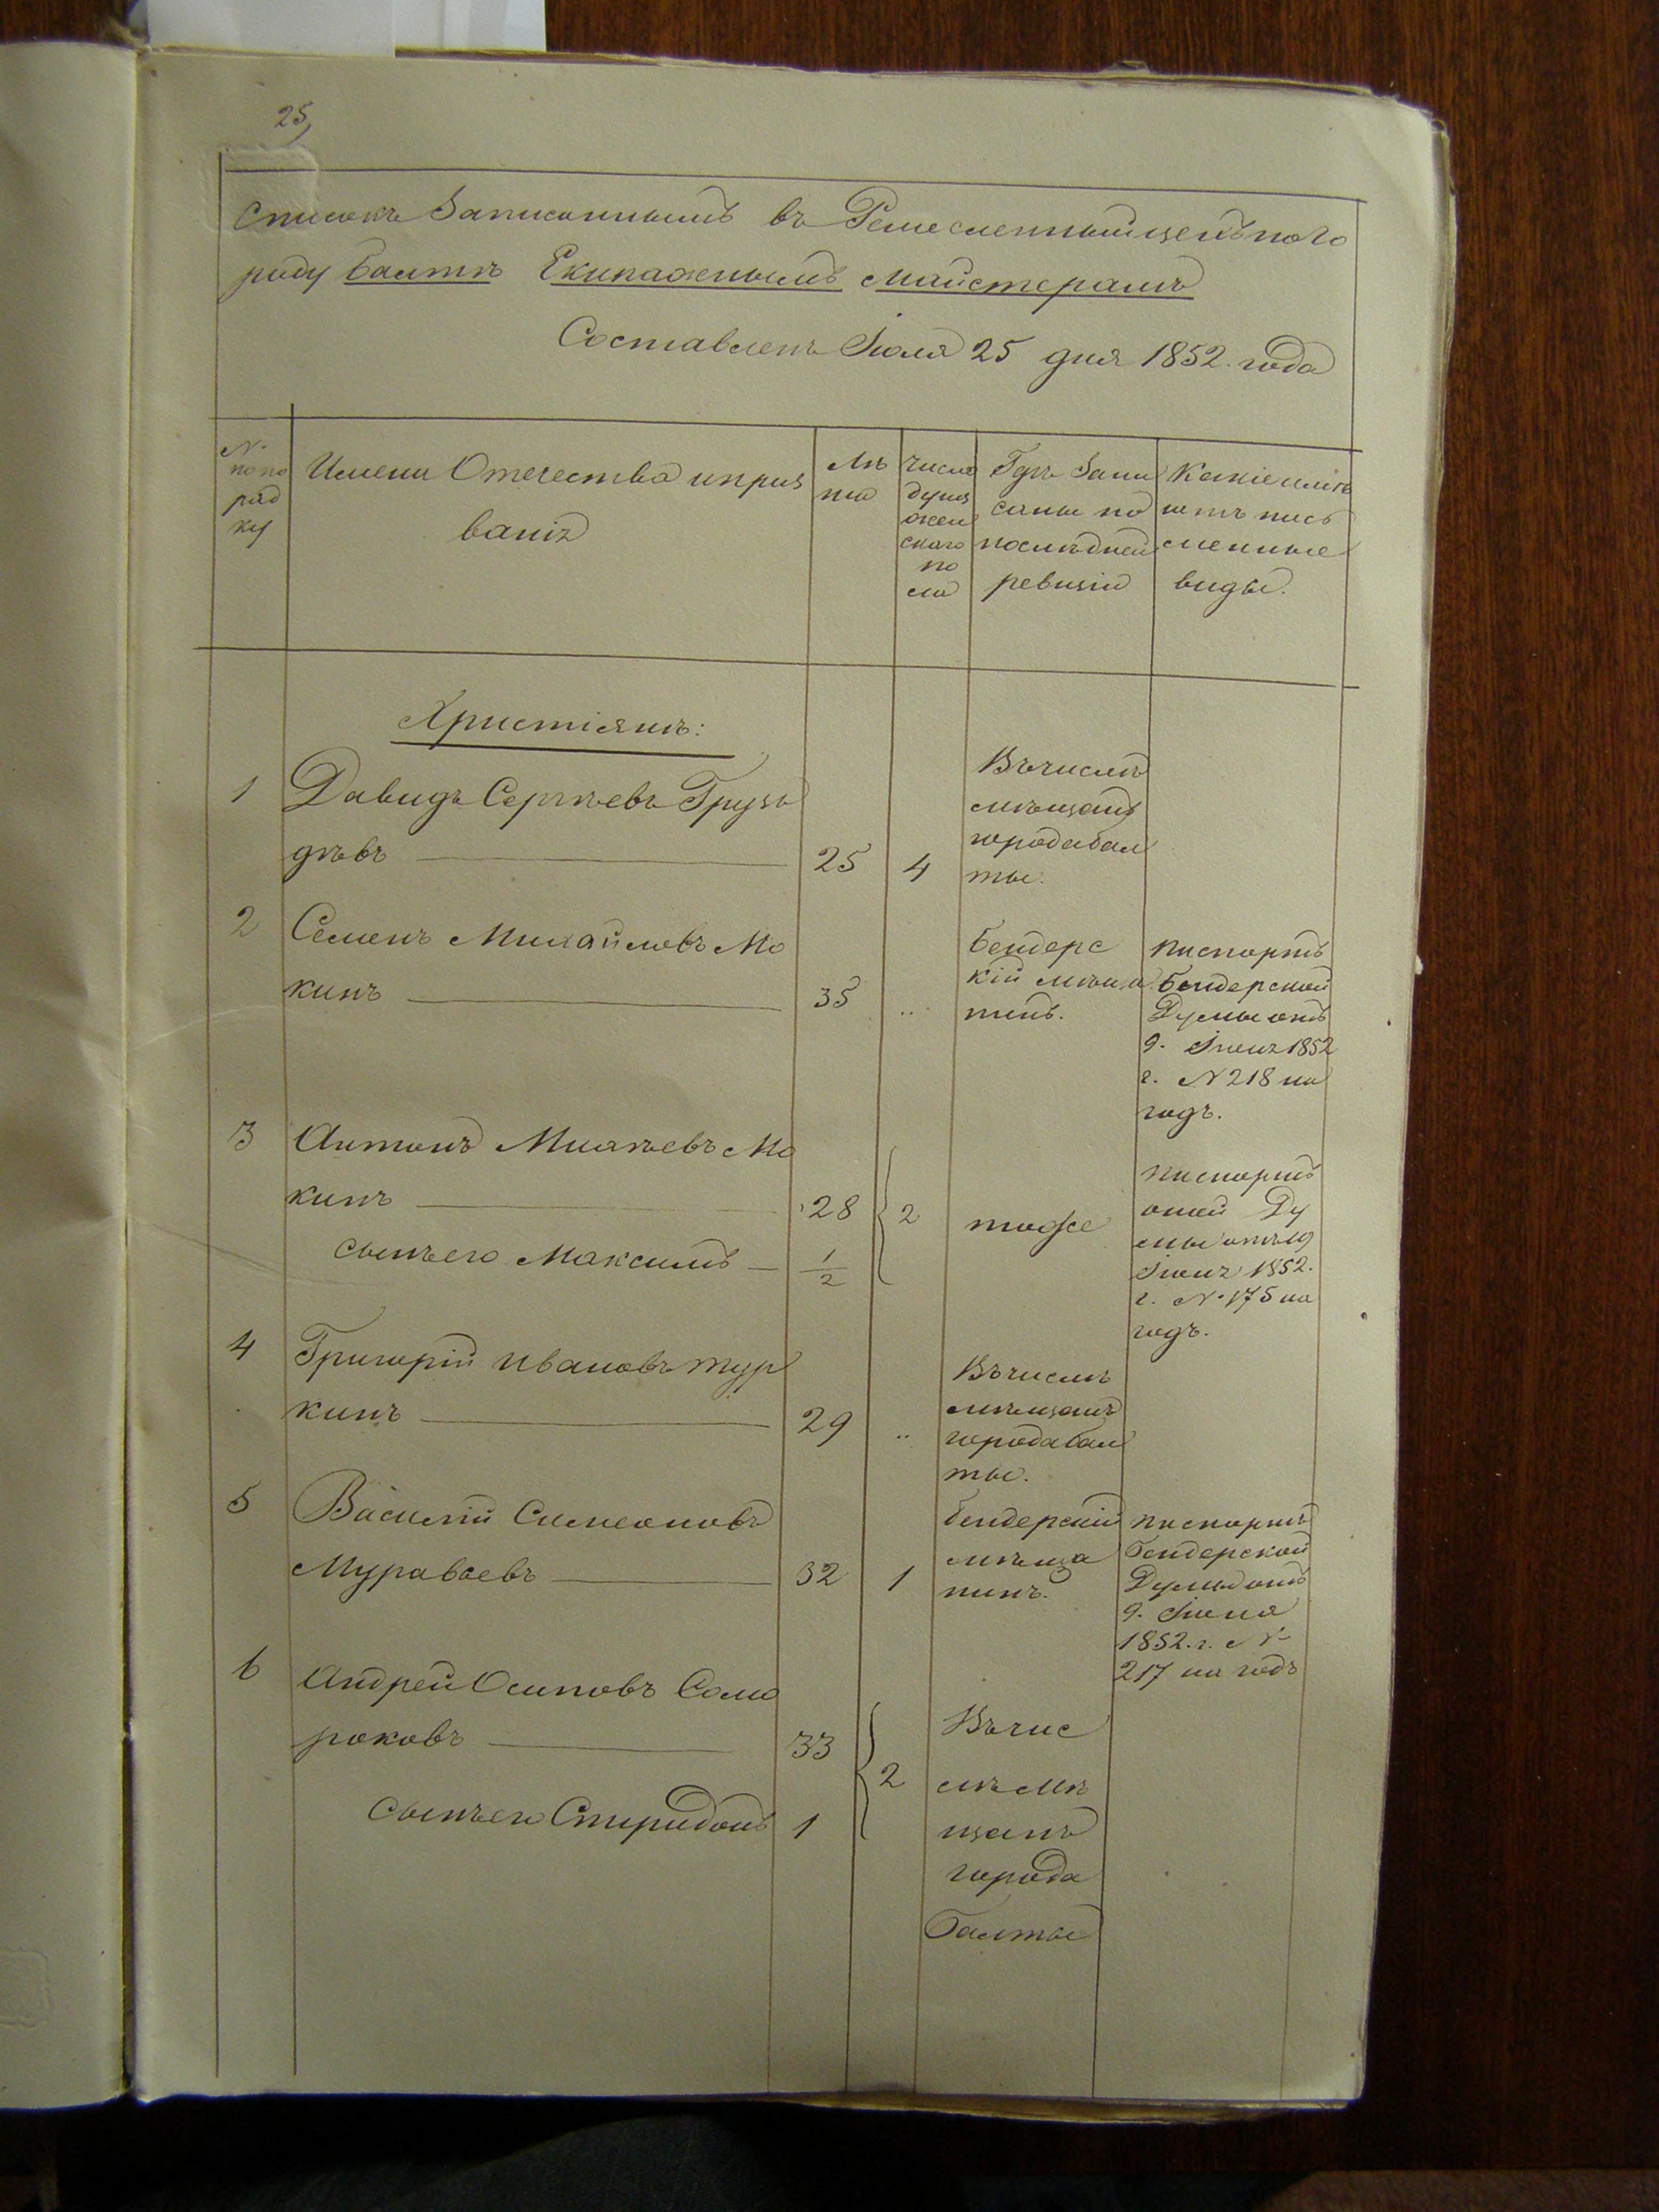 25,
Списокъ Записаннымъ въ Ремесленный цехъ по го
роду Балтѣ Екипажнымъ Майстерамъ
Составленъ Іюля 25 дня 1852. года
№ по по ряд ку
Имена Отечества и прозваніе
Лѣ та
Число душъ женскаго по ла
Гдѣ Записаны по последней ревизіи
Какіе имѣютъ письменные виды.
Христіянъ:
1 Давидъ Сергѣевъ Груз
дѣвъ 25 4
Въ числѣ
мѣщанъ
города Бал
ты.
2 Семенъ Михайловъ Мо
кинъ 35 ..
Бендерс
кій мѣща
нинъ.
паспортъ
Бендерской
Думы отъ
9. Іюня 1852
г. № 218 на
годъ.
3 Антонъ Михѣевъ Мо
кинъ 28
сынъ его Максимъ 1/2
2
тоже
паспортъ
оной Ду
мы отъ 19
Іюня 1852.
г. № 175 на
годъ.
4 Григорій Ивановъ Тур
кинъ 29 ..
Въ числѣ
мѣщанъ
города Бал
ты.
5 Василій Симеоновъ
Муравьевъ 32 1
Бендерскій
мѣща
нинъ.
паспортъ
Бендерской
Думы отъ
9. Іюня
1852. г. №
217 на годъ
6 Андрей Осиповъ Само
роковъ 33
сынъ его Спиридонъ 1
2
Въ чис
лѣ мѣ
щанъ
города
Балты